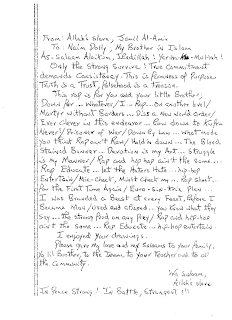 From: Allah's Slave, Jamil Al-Amin
To: Naim Dolly; My Brother in Islam
As-Salaam Alaikum,
Only the Strong Survive! True Commitment
demands Consistency. This is firmness of Purpose.
Truth is a Trust, falsehood is a Treason.
This rap is for you and your little Brother;
Down for... Whatever / I... Rap... On another level/
Martyr without Borders... Diss a New World Order/
Ever Clever in this endeavor... Bow down to Kufr
Never / Prisoner of War / Down by Law... What made
you think Rap won't Raw / Hold'n down... The Blood
Stained Banner... Devotion is my Art... Struggle
is my Manner / Rap and hip hop ain't the same...
Rap Educate... let the Haters Hate... hip-hop
Entertain / Mic-check, Might check my... Rap Sheet...
For the First Time Again / Euro-six-this Plea...
I was Branded a Beast at every Feast, Before I
Became Man / Used and Abused... You know what they
Say... The strong feed on any Prey / Rap and hip-hop
ain't the same... Rap Educate... hip-hop entertain.
I enjoyed your drawings.
Please give my love and my Salaams to your family,
to lil Brother, to the Imam, to your Teacher and to all
the Community.
Was Salaam,
Allah's Slave
In Peace Strong! In Battle, Strongest!!!